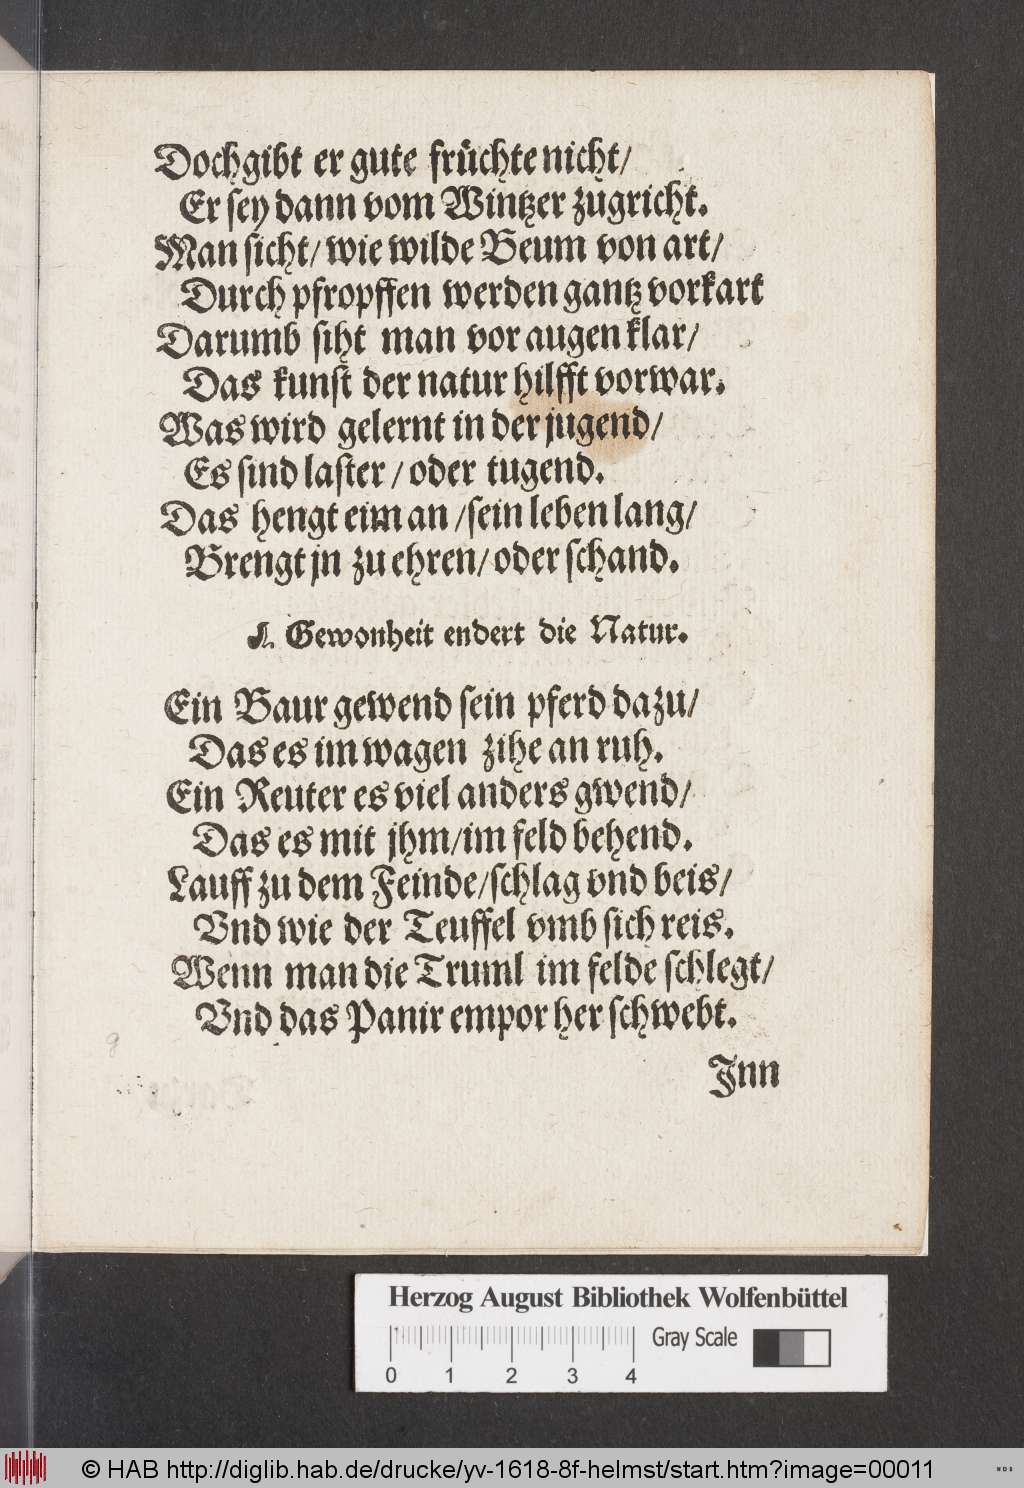 Doch gibt er gute früchte nicht/
Er sey dann vom Wintzer zugricht.
Man sicht/ wie wilde Beum von art/
Durch pfropffen werden gantz vorkart
Darumb siht man vor augen klar/
Das kunst der natur hilfft vorwar.
Was wird gelernt in der jugend/
Es sind laster/ oder tugend.
Das hengt eim an/ sein leben lang/
Brengt jn zu ehren/ oder schand.
Gewonheit endert die Natur.
Ein Baur gewend sein pferd dazu/
Das es im wagen zihe an ruh.
Ein Reuter es viel anders gwend/
Das es mit jhm/ im feld behend.
Lauff zu dem Feinde/ schlag vnd beis/
Vnd wie der Teuffel vmb sich reis.
Wenn man die Truml im felde schlegt/
Vnd das Panir empor her schwebt.
Inn
Herzog August Bibliothek Wolfenbüttel
Gray Scale
0 1 2 3 4
© HAB http://diglib.hab.de/drucke/yv-1618-8f-helmst/start.htm?image=00011